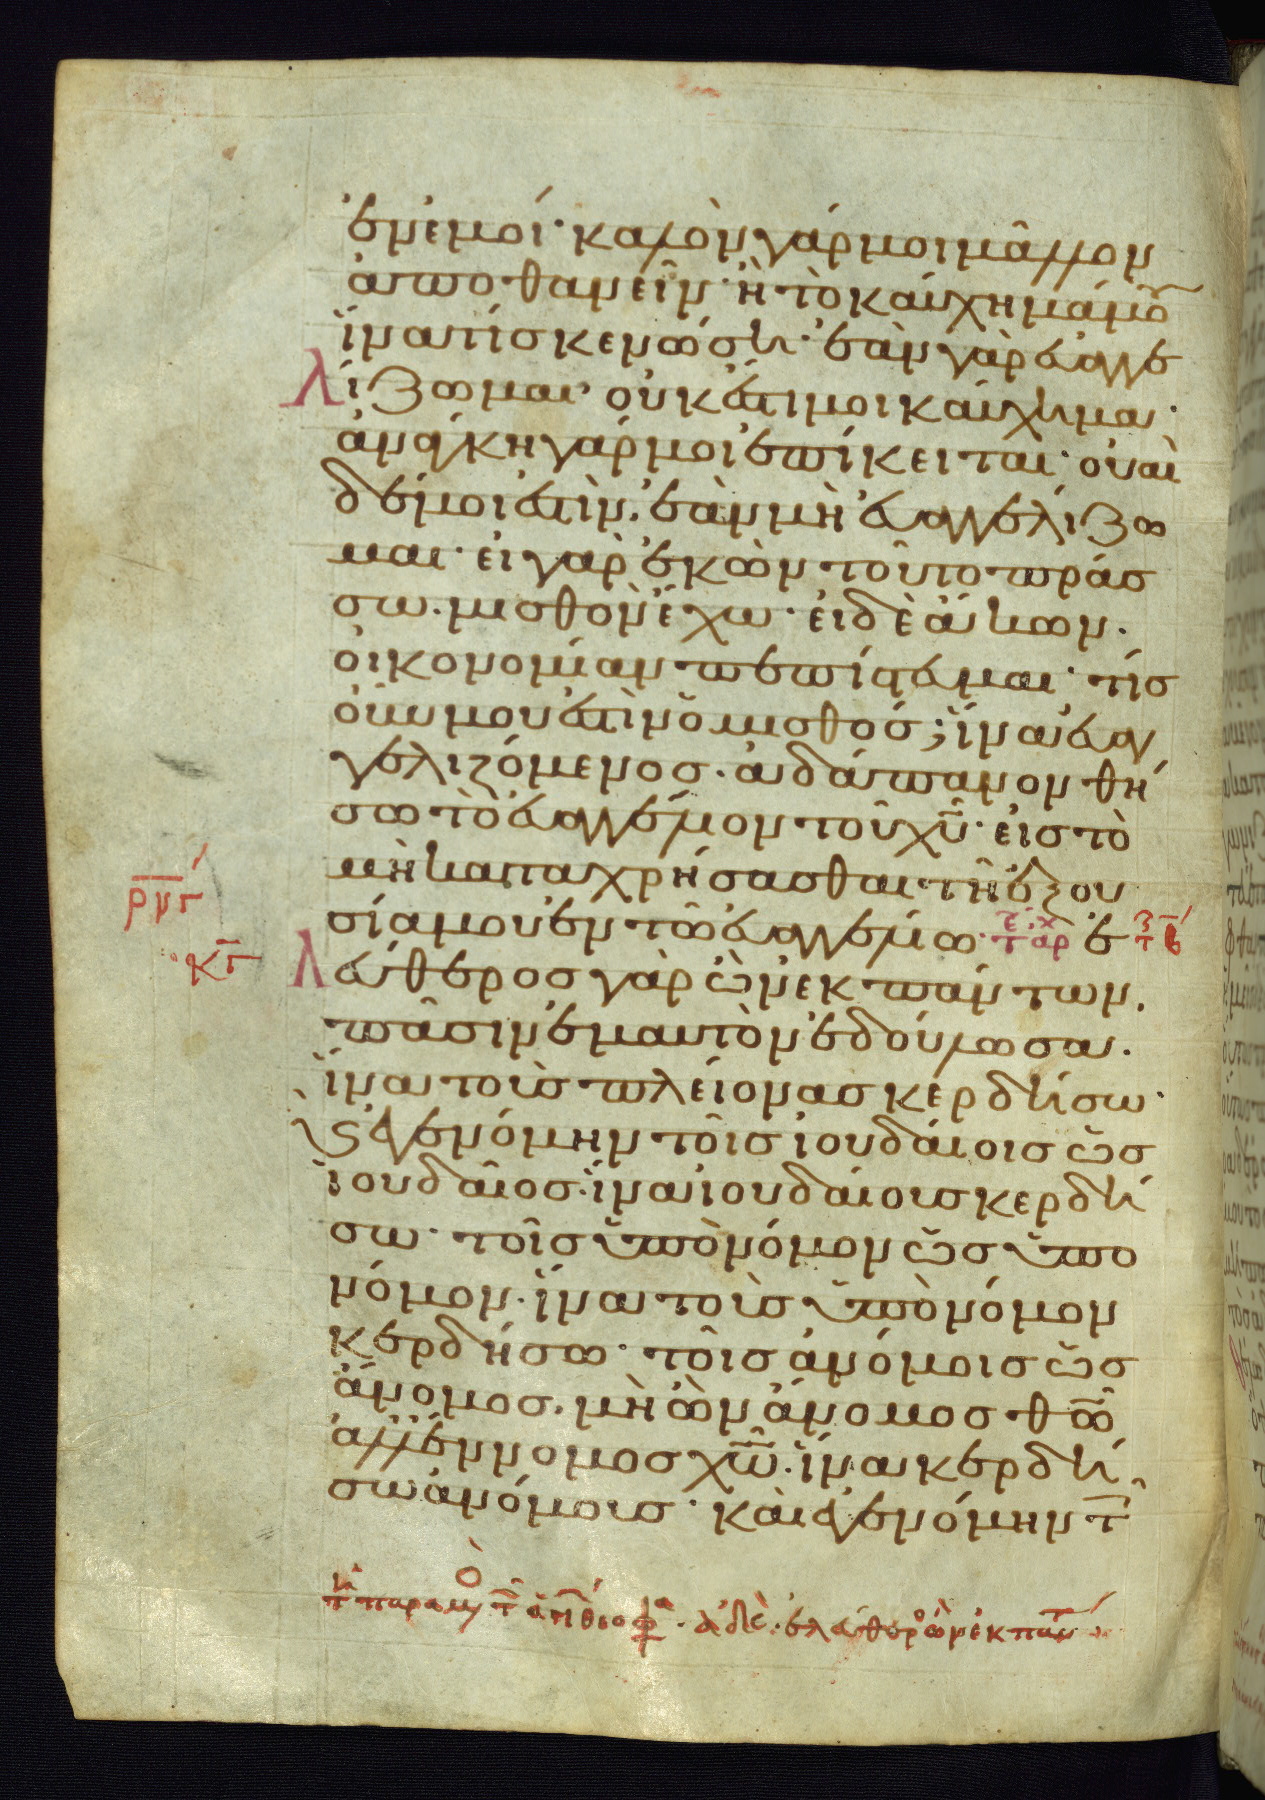 ἐν ἐμοί· καλὸν γάρ μοι μᾶλλον
ἀποθανεῖν· ἢ τὸ καύχημά μου
ἵνα τίσ κενώση· ἐὰν γὰρ εὐαγγε
λίζωμαι· οὐκ ἔστι μοι καύχημα·
ἀνάγκη γάρ μοι ἐπίκειται· οὐαὶ
δέ μοι ἐστὶν. ἐὰν μὴ εὐαγγελίζω
μαι· εἰ γὰρ ἑκὼν τοῦτο πράσ
σω. μισθὸν ἔχω· εἰ δὲ ἄκων.
οἰκονομίαν πεπίστευμαι· τίσ
οὖν μου ἐστὶν ὁ μισθόσ; ἵνα εὐαγ
γελιζόμενοσ. ἀδάπανον θή
σω τὸ εὐαγγέλιον τοῦ χῦ· εἰσ τὸ
μὴ καταχρήσασθαι τῆ ἐξου
σία μου ἐν τῶ εὐαγγελίω· ἐ
ρνγ
κγ
λεύθεροσ γὰρ ὢν ἐκ πάντων.
πᾶσιν ἐμαυτὸν ἐδούλωσα.
ἵνα τοὺσ πλείονασ κερδήσω·
κ ἐγενόμην τοῖσ ἰουδαίοισ ὡσ
ἰουδαῖοσ. ἵνα ἰουδαίουσ κερδή
σω· τοῖσ ὑπὸ νόμον ὡσ ὑπο
νόμον. ἵνα τοὺσ ὑπὸ νόμον
κερδήσω· τοῖσ ἀνόμοισ ὡσ
ἄνομοσ. μὴ ὢν ἄνομοσ θῶ
ἀλλ' ἔννομοσ χῶ. ἵνα κερδή
σω ἀνόμουσ· καὶ ἐγενόμην τ
ἀδε. ἐλεύθερο ὢν ἐκ παντ